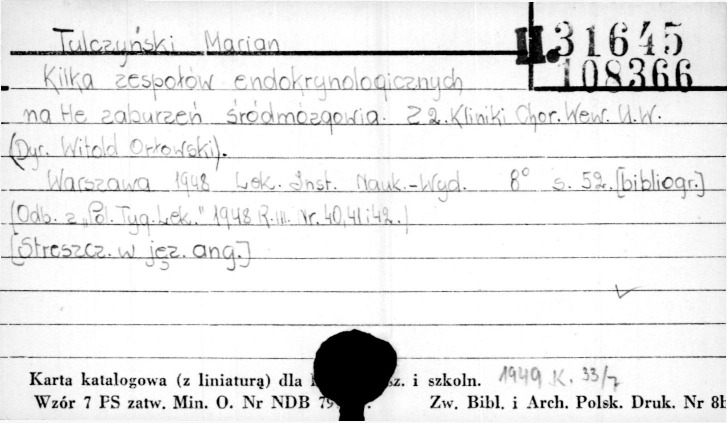 Tulczyński Marian
II. 31645
108366
Kilka zespołów endokrynologicznych
na tle zaburzeń śródmózgowia. Z 2. Kliniki Chor. Wew. U.W.
(Dyr. Witold Orłowski).
Warszawa 1948 Lek. Inst. Nauk.-Wyd. 8° s. 52. [bibliogr.]
(Odb. z „Pol. Tyg. Lek." 1948 R. III. Nr. 40, 41 i 42.)
[Streszcz. w jęz. ang.]
Karta katalogowa (z liniaturą) dla sz. i szkoln. 1949 K. 33/7
Wzór 7 PS zatw. Min. O. Nr NDB 79 Zw. Bibl. i Arch. Polsk. Druk. Nr 8